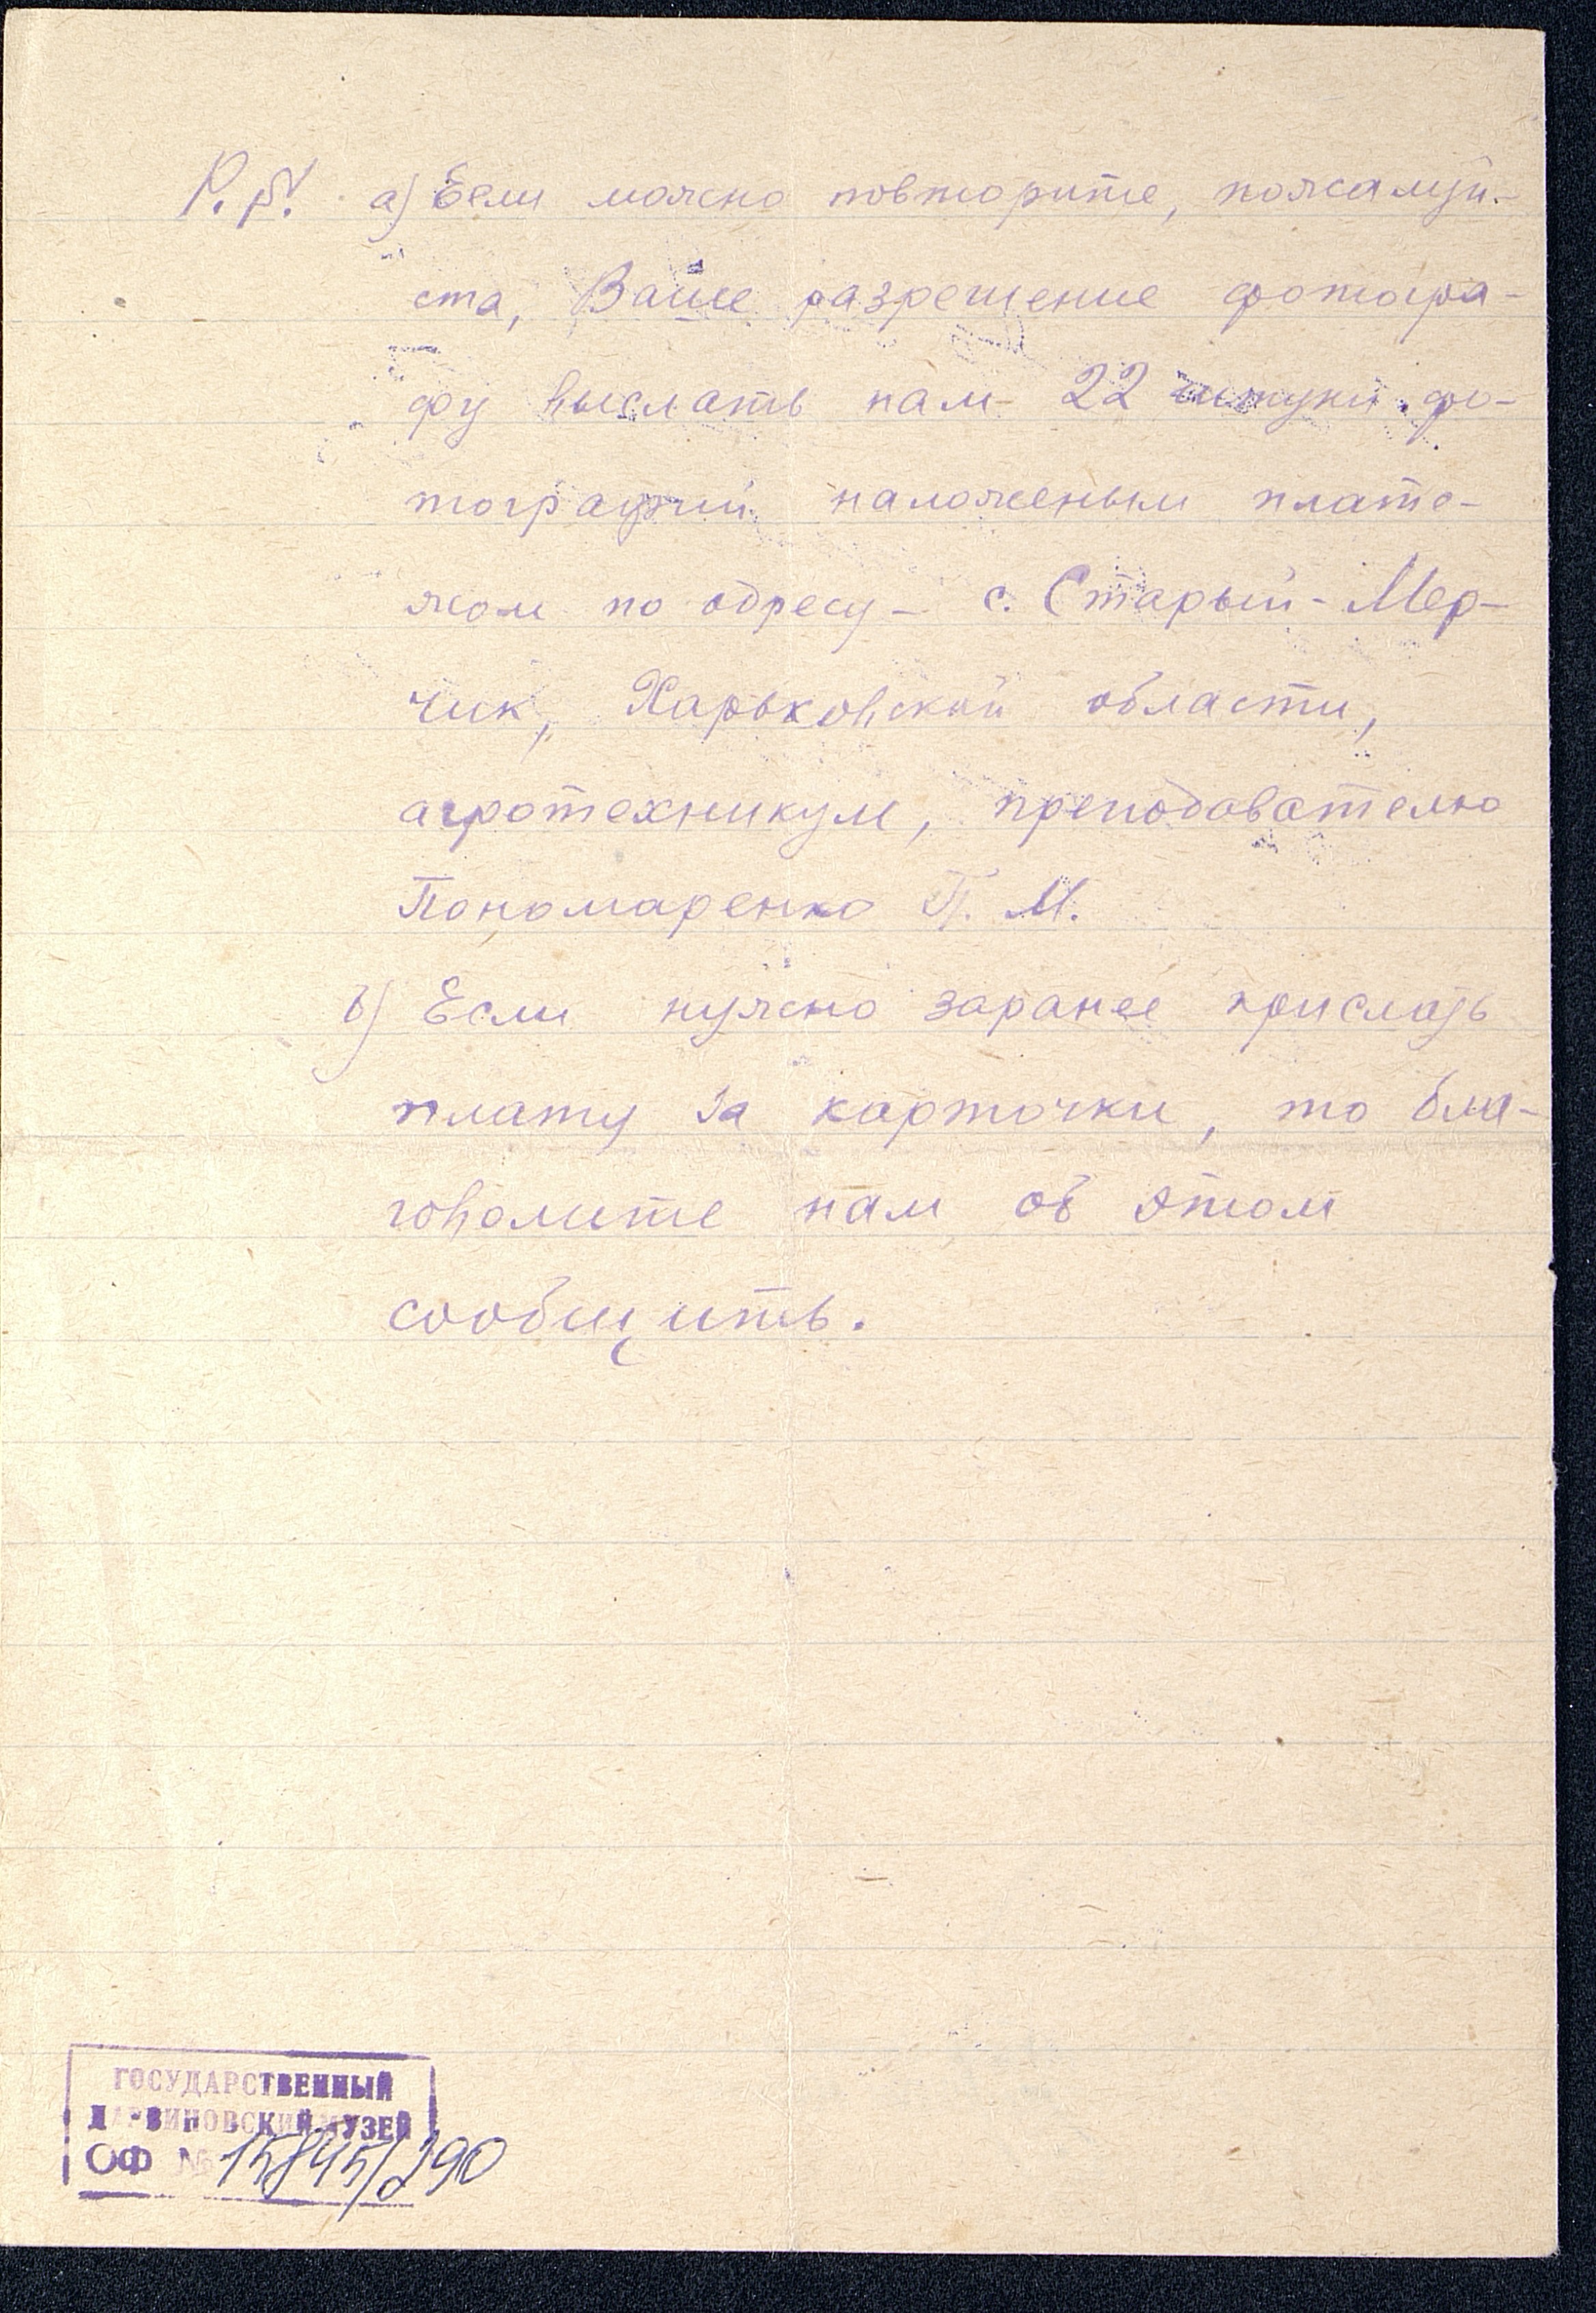 P.S. а) Если можно повторите, пожалуй-
ста, Ваше разрешение фотогра-
фу выслать нам 22 штуки фо-
тографий наложеным плате-
жом по адресу - с. Старый-Мер-
чик, Харьковской области,
агротехникум, преподавателю
Пономаренко П. М.
в) Если нужно заранее прислать
плату за карточки, то бла-
говолите нам об этом
сообщить.
ГОСУДАРСТВЕННЫЙ
ДАРВИНОВСКИЙ МУЗЕЙ
ОФ № 15845/290